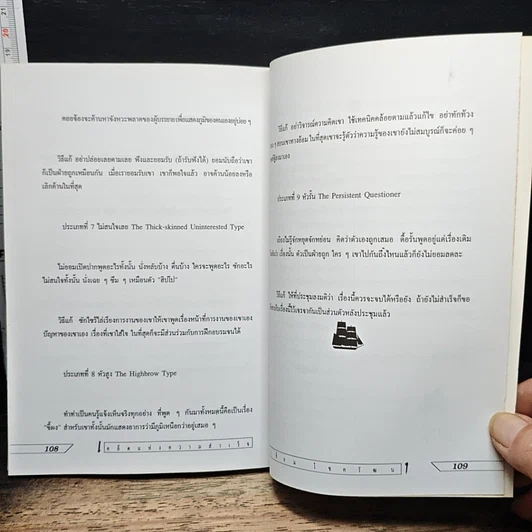 คอยจ้องจะค้านหาจังหวะพลาดของผู้บรรยายเพื่อแสดงภูมิของตนเองอยู่บ่อย ๆ
วิธีแก้ อย่าปล่อยเลยตามเลย ฟังและยอมรับ (ถ้ารับฟังได้) ยอมนับถือว่าเขา
ก็เป็นฝ่ายถูกเหมือนกัน เมื่อเรายอมรับเขา เขาก็พอใจแล้ว อาจค้านน้อยลงหรือ
เลิกค้านในที่สุด
ประเภทที่ 7 ไม่สนใจเลย The Thick-skinned Uninterested Type
ไม่ยอมเปิดปากพูดอะไรทั้งนั้น นั่งหลับบ้าง ตื่นบ้าง ใครจะพูดอะไร ซักอะไร
ไม่สนใจทั้งนั้น นั่งเฉย ๆ ซึม ๆ เหมือนตัว "ฮิปโป"
วิธีแก้ ซักไซร้ไล่เรียงการงานของเขาให้เขาพูดเรื่องหน้าที่การงานของเขาเอง
ปัญหาของเขาเอง เรื่องที่เขาใส่ใจ ในที่สุดก็จะมีส่วนร่วมกับการฝึกอบรมจนได้
ประเภทที่ 8 หัวสูง The Highbrow Type
ทำท่าเป็นคนรู้แจ้งเห็นจริงทุกอย่าง ที่พูด ๆ กันมาทั้งหมดนี้คือเป็นเรื่อง
"ขี้ผง" สำหรับเขาทั้งนั้นมักแสดงอาการว่ามีภูมิเหนือกว่าอยู่เสมอ ๆ
108
วิธีแก้ อย่าวิจารณ์ความคิดเขา ใช้เทคนิคคล้อยตามแล้วแก้ไข อย่าหักท้วง
ๆ สอนเขาทางอ้อม ในที่สุดเขาจะรู้ตัวว่าความรู้ของเขายังไม่สมบูรณ์ก็จะค่อย ๆ
ประเภทที่ 9 หัวรั้น The Persistent Questioner
เถียงไม่รู้จักหยุดจักหย่อน คิดว่าตัวเองถูกเสมอ ดื้อรั้นพูดอยู่แต่เรื่องเดิม
ตัวเป็นฝ่ายถูก ใคร ๆ เขาไปกันถึงไหนแล้วก็ยังไม่ยอมลดละ
วิธีแก้ ให้ที่ประชุมลงมติว่า เรื่องนี้ควรจะจบได้หรือยัง ถ้ายังไม่สำเร็จก็ขอ
เรื่องนี้ไว้เจรจากันเป็นส่วนตัวหลังประชุมแล้ว
109